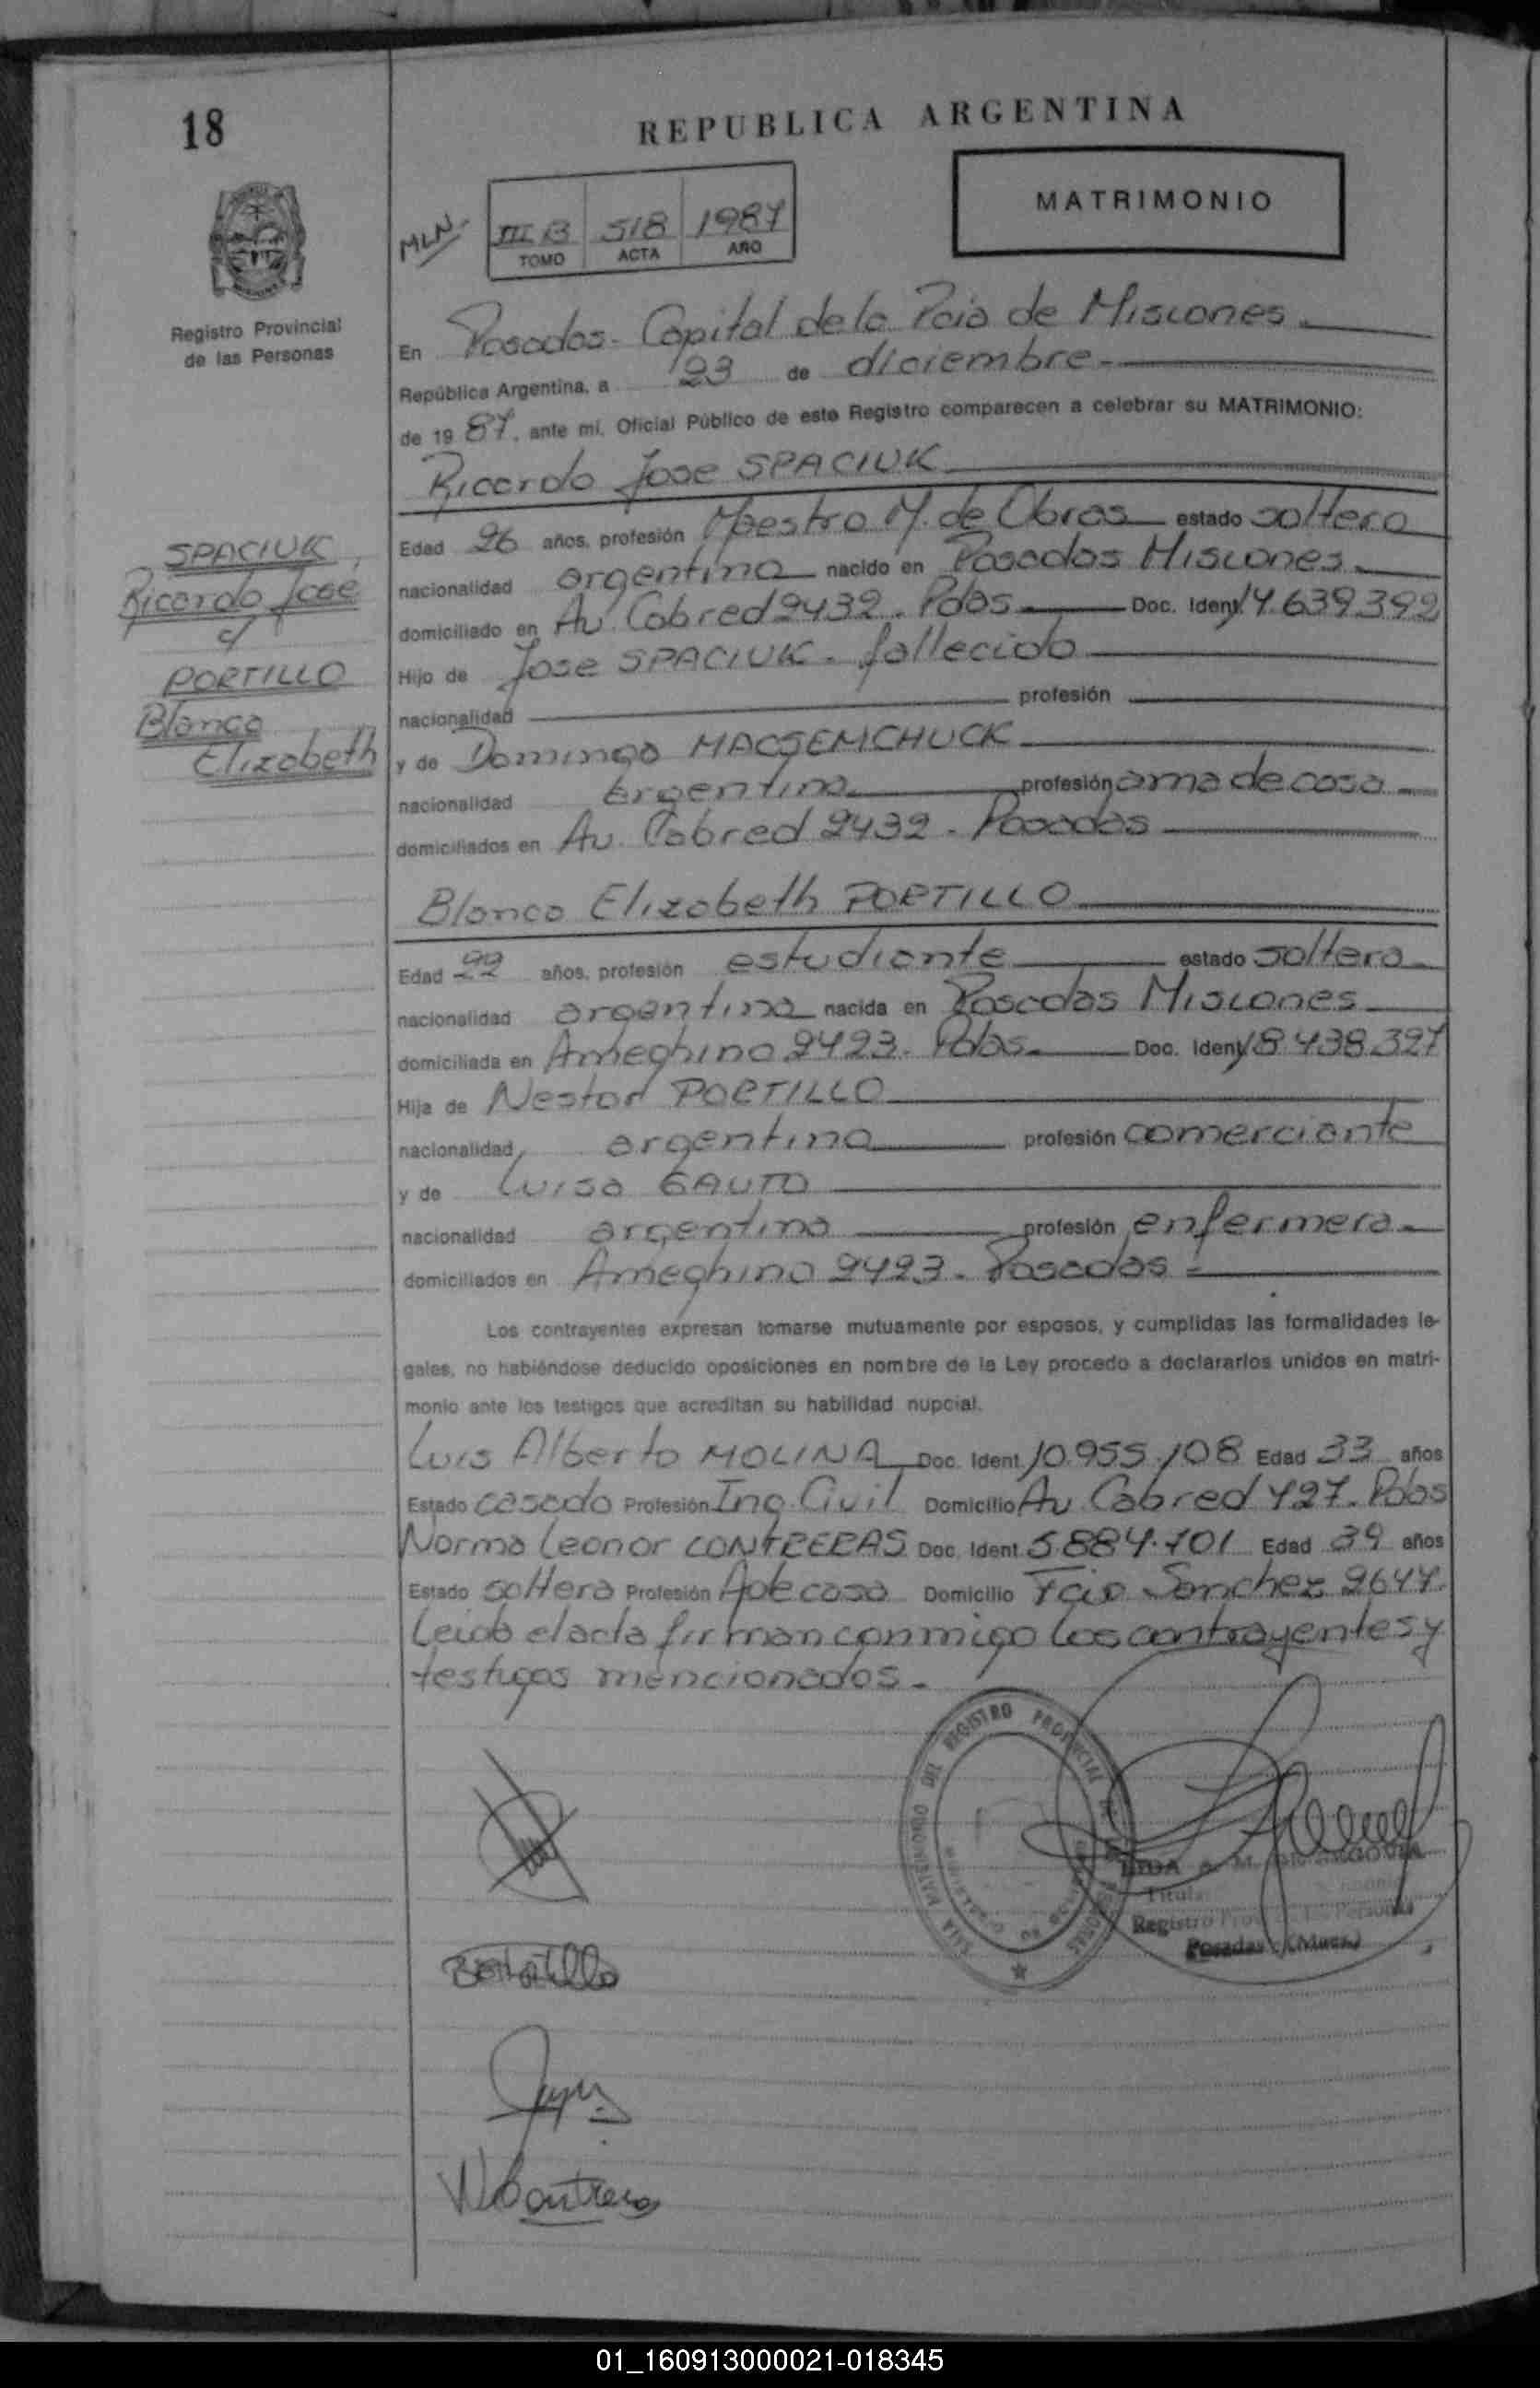 18
REPUBLICA ARGENTINA
MATRIMONIO
MLN-
III B 518 1987
TOMO ACTA AÑO
Registro Provincial
de las Personas
En Posadas - Capital de la Pcia de Misiones
República Argentina, a 23 de diciembre
de 19 87, ante mí, Oficial Público de este Registro comparecen a celebrar su MATRIMONIO:
Ricardo Jose SPACIUK
Edad 26 años, profesión Maestro M. de Obras estado soltero
nacionalidad argentino nacido en Posadas Misiones
domiciliado en Av. Cabred 2432 - Pdas Doc. Ident. 14.639.392
Hijo de Jose SPACIUK - fallecido
nacionalidad profesión
y de Dominga MACSEMCHUCK
nacionalidad argentina profesión ama de casa
domiciliados en Av. Cabred 2432 - Posadas
SPACIUK,
Ricardo José
c/
PORTILLO
Blanca
Elizabeth
Blanca Elizabeth PORTILLO
Edad 22 años, profesión estudiante estado soltera
nacionalidad argentina nacida en Posadas Misiones
domiciliada en Ameghino 2423 - Pdas. Doc. Ident. 18 438.327
Hija de Nestor PORTILLO
nacionalidad argentino profesión comerciante
y de Luisa GAUTO
nacionalidad argentina profesión enfermera
domiciliados en Ameghino 2423 - Posadas
Los contrayentes expresan tomarse mutuamente por esposos, y cumplidas las formalidades le-
gales, no habiéndose deducido oposiciones en nombre de la Ley procedo a declararlos unidos en matri-
monio ante los testigos que acreditan su habilidad nupcial.
Luis Alberto MOLINA Doc. Ident. 10.955.108 Edad 33 años
Estado casado Profesión Ing. Civil Domicilio Av. Cabred 427 - Pdas
Norma Leonor CONTRERAS Doc. Ident. 5.884.701 Edad 39 años
Estado soltera Profesión A de casa Domicilio Sanchez 2647
Leida el acta firman conmigo los contrayentes y
testigos mencionados.-
DEL REGISTRO PROVINCIAL DE LAS PERSONAS
SALA MATRIMONIO
A. M. DE SEGOVIA
Titular
Registro Prov. Personas
Posadas (Mnes.)
BEPortillo
NLContreras
01_160913000021-018345